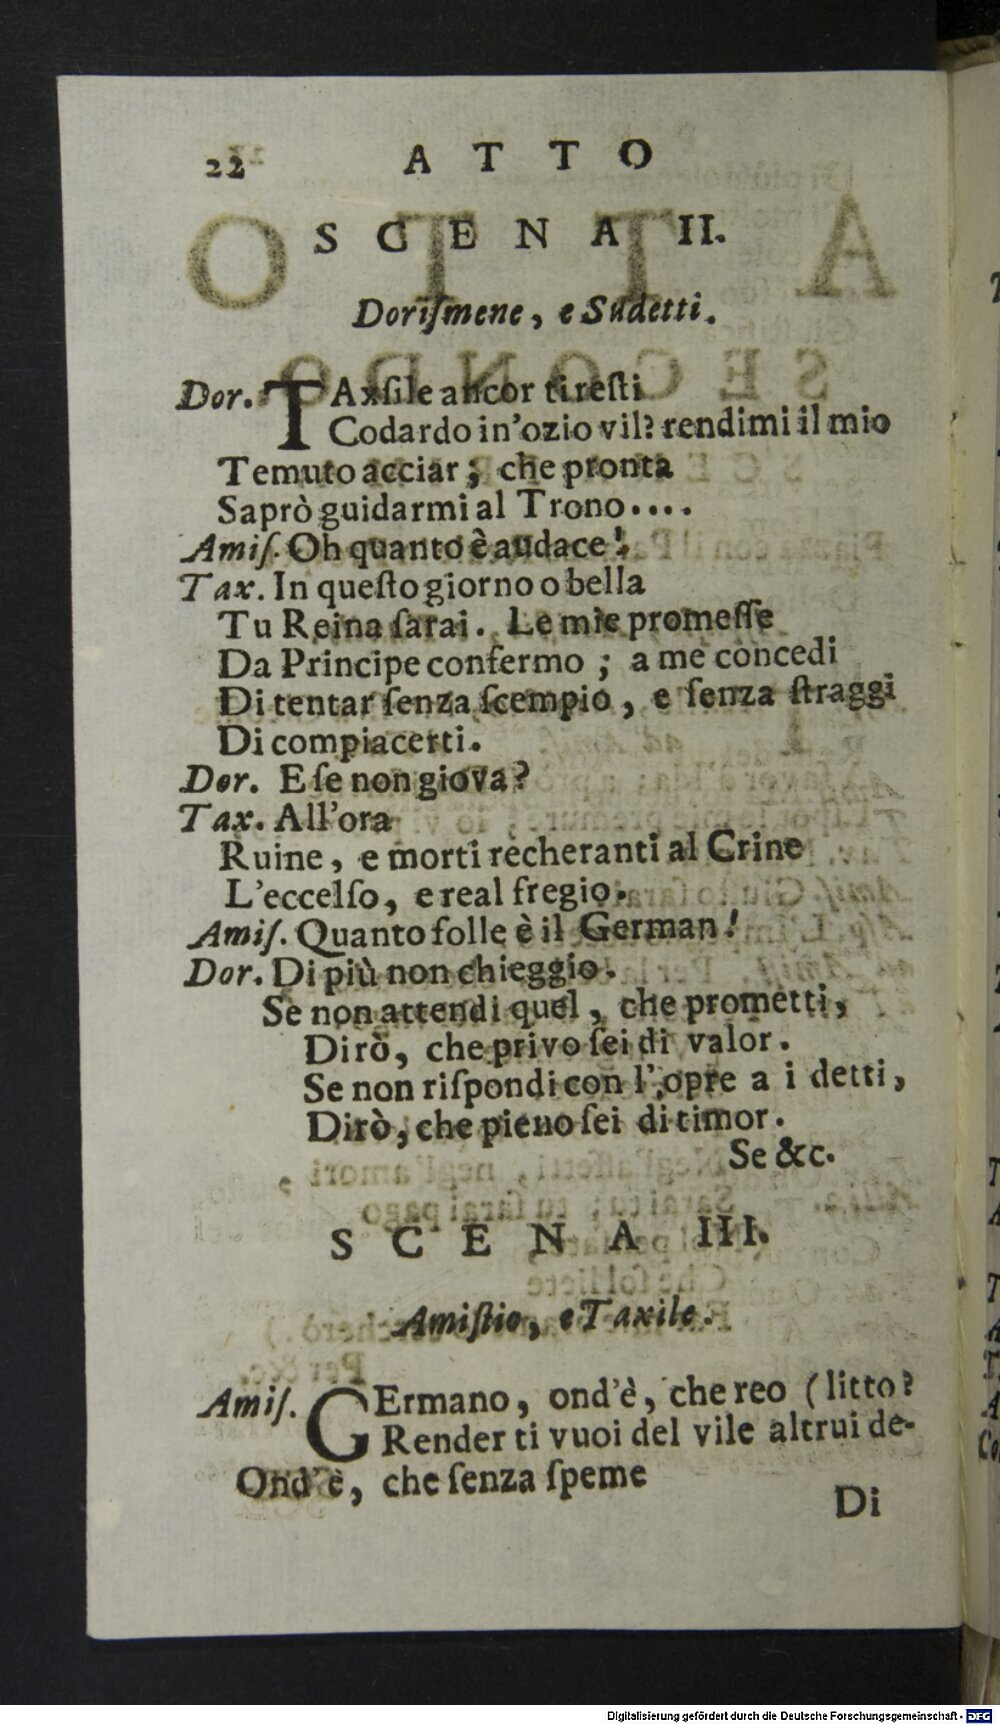 22 ATTO
SCENA II.
Doriſmene, e Sudetti.
Dor. TAxſile ancor ti reſti
Codardo in'ozio vil? rendimi il mio
Temuto acciar; che pronta
Saprò guidarmi al Trono....
Amiſ. Oh quanto è audace!
Tax. In queſto giorno o bella
Tu Reina ſarai. Le mie promeſſe
Da Principe confermo; a me concedi
Di tentar ſenza ſcempio, e ſenza ſtraggi
Di compiacerti.
Dor. E ſe non giova?
Tax. All'ora
Ruine, e morti recheranti al Crine
L'eccelſo, e real fregio.
Amiſ. Quanto folle è il German!
Dor. Di più non chieggio.
Se non attendi quel, che prometti,
Dirò, che privo ſei di valor.
Se non riſpondi con l'opre a i detti,
Dirò, che pieno ſei di timor.
Se &c.
SCENA III.
Amiſtio, e Taxile.
Amiſ. GErmano, ond'è, che reo (litto?
Render ti vuoi del vile altrui de-
Ond'è, che ſenza ſpeme
Di
Digitalisierung gefördert durch die Deutsche Forschungsgemeinschaft - DFG